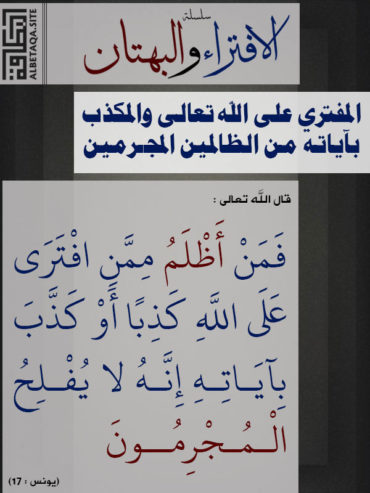 سلسلة
الافتراء والبهتان
البطاقة
ALBETAQA.SITE
المفتري على الله تعالى والمكذب
بآياته من الظالمين المجرمين
قال اللَّه تعالى :
فَمَنْ أَظْلَمُ مِمَّنِ افْتَرَى
عَلَى اللَّهِ كَذِبًا أَوْ كَذَّبَ
بِآيَـاتِـهِ إِنَّـهُ لَا يُفْـلِحُ
الْـمُـجْـرِمُـونَ
(يونس : 17)